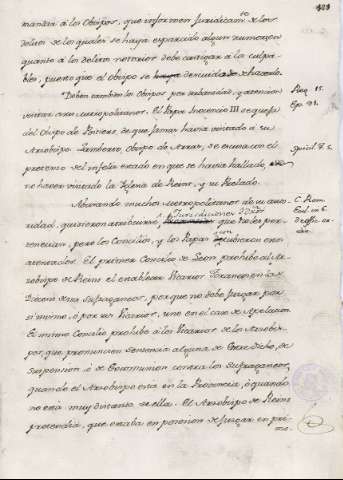 manda à los Obispos, que informen juridicamte. de los
delitos de los quales se haya esparcido algun rumor; en
quanto à los delitos notorios debe castigar à los culpa-
bles, puesto que el Obispo se descuida de hacerlo.
Deben tambien los Obispos por urbanidad, y atencion
visitar a su metropolitano. El Papa Inocencio III se quexa
del Obispo de Poitiers, de que jamas havia visitado à su
Arzobispo. Lamberto, Obispo de Arras, se escusa con el
pretexto del infeliz estado en que se havia hallado, de
no haver visitado la Iglesia de Reims, y su Prelado.
Abusando muchos metropolitanos de su auto-
ridad, quisieron atribuirse Jurisdiciones que no les per-
tenecian, pero los Concilios, y los Papas
atentados. El primer Concilio de Leon prohibe al Ar-
zobispo de Reims el establecer Vicarios Foraneos en las
Diocesis de sus Sufraganeos, porque no debe juzgar por
si mismo, ó por sus Vicarios, sino en el caso de Apelacion.
El mismo Concilio prohibe à los Vicarios de los Arzobis-
pos, que pronuncien sentencia alguna de Entredicho, de
suspension, ó de Excomunion contra los Sufraganeos,
quando el Arzobispo està en la Provincia, ó quando
no està muy distante de ella. El Arzobispo de Reims
pretendia, que estaba en posesion de juzgar en pri-
Reg. 15.
Ep. 91.
C. Rom.